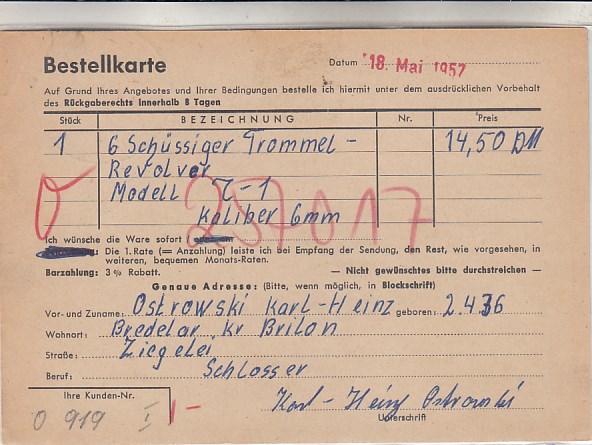 Bestellkarte
Datum 18. Mai 1957
Auf Grund Ihres Angebotes und Ihrer Bedingungen bestelle ich hiermit unter dem ausdrücklichen Vorbehalt
des Rückgaberechts innerhalb 8 Tagen
Stück BEZEICHNUNG Nr. Preis
1 6 Schüssiger Trommel- 14,50 DM
Revolver
Modell T-1
257017
Kaliber 6mm
Ich wünsche die Ware sofort (
: Die 1. Rate (= Anzahlung) leiste ich bei Empfang der Sendung, den Rest, wie vorgesehen, in
weiteren, bequemen Monats-Raten.
Barzahlung: 3% Rabatt. — Nicht gewünschtes bitte durchstreichen —
Genaue Adresse: (Bitte, wenn möglich, in Blockschrift)
Vor- und Zuname: Ostrowski Karl-Heinz geboren: 2.4.36
Wohnort: Bredelar Kr Brilon
Straße: Ziegelei
Beruf: Schlosser
Ihre Kunden-Nr.
O 919 I 1-
Karl-Heinz Ostrowski
Unterschrift